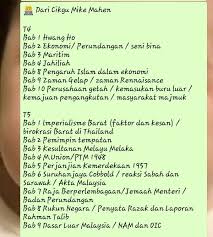 Dari Cikgu Mike Mahen
T4
Bab 1 Hwang Ho
Bab 2 Ekonomi/ Perundangan / seni bina
Bab 3 Maritim
Bab 4 Jahiliah
Bab 8 Pengaruh Islam dalam ekonomi
Bab 9 Zaman Gelap / zaman Rennaisance
Bab 10 Perusahaan getah / kemasukan buru luar /
kemajuan pengangkutan / masyarakat majmuk
T5
Bab 1 Imperialisme Barat (faktor dan kesan) /
birokrasi Barat di Thailand
Bab 2 Pemimpin tempatan
Bab 3 Kesultanan Melayu Melaka
Bab 4 M.Union/PTM 1948
Bab 5 Perjanjian Kemerdekaan 1957
Bab 6 Suruhanjaya Cobbold / reaksi Sabah dan
Sarawak / Akta Malaysia
Bab 7 Raja Berperlembagaan/Jemaah Menteri /
Badan Perundangan
Bab 8 Rukun Negara / Penyata Razak dan Laporan
Rahman Talib
Bab 9 Dasar Luar Malaysia / NAM dan OIC